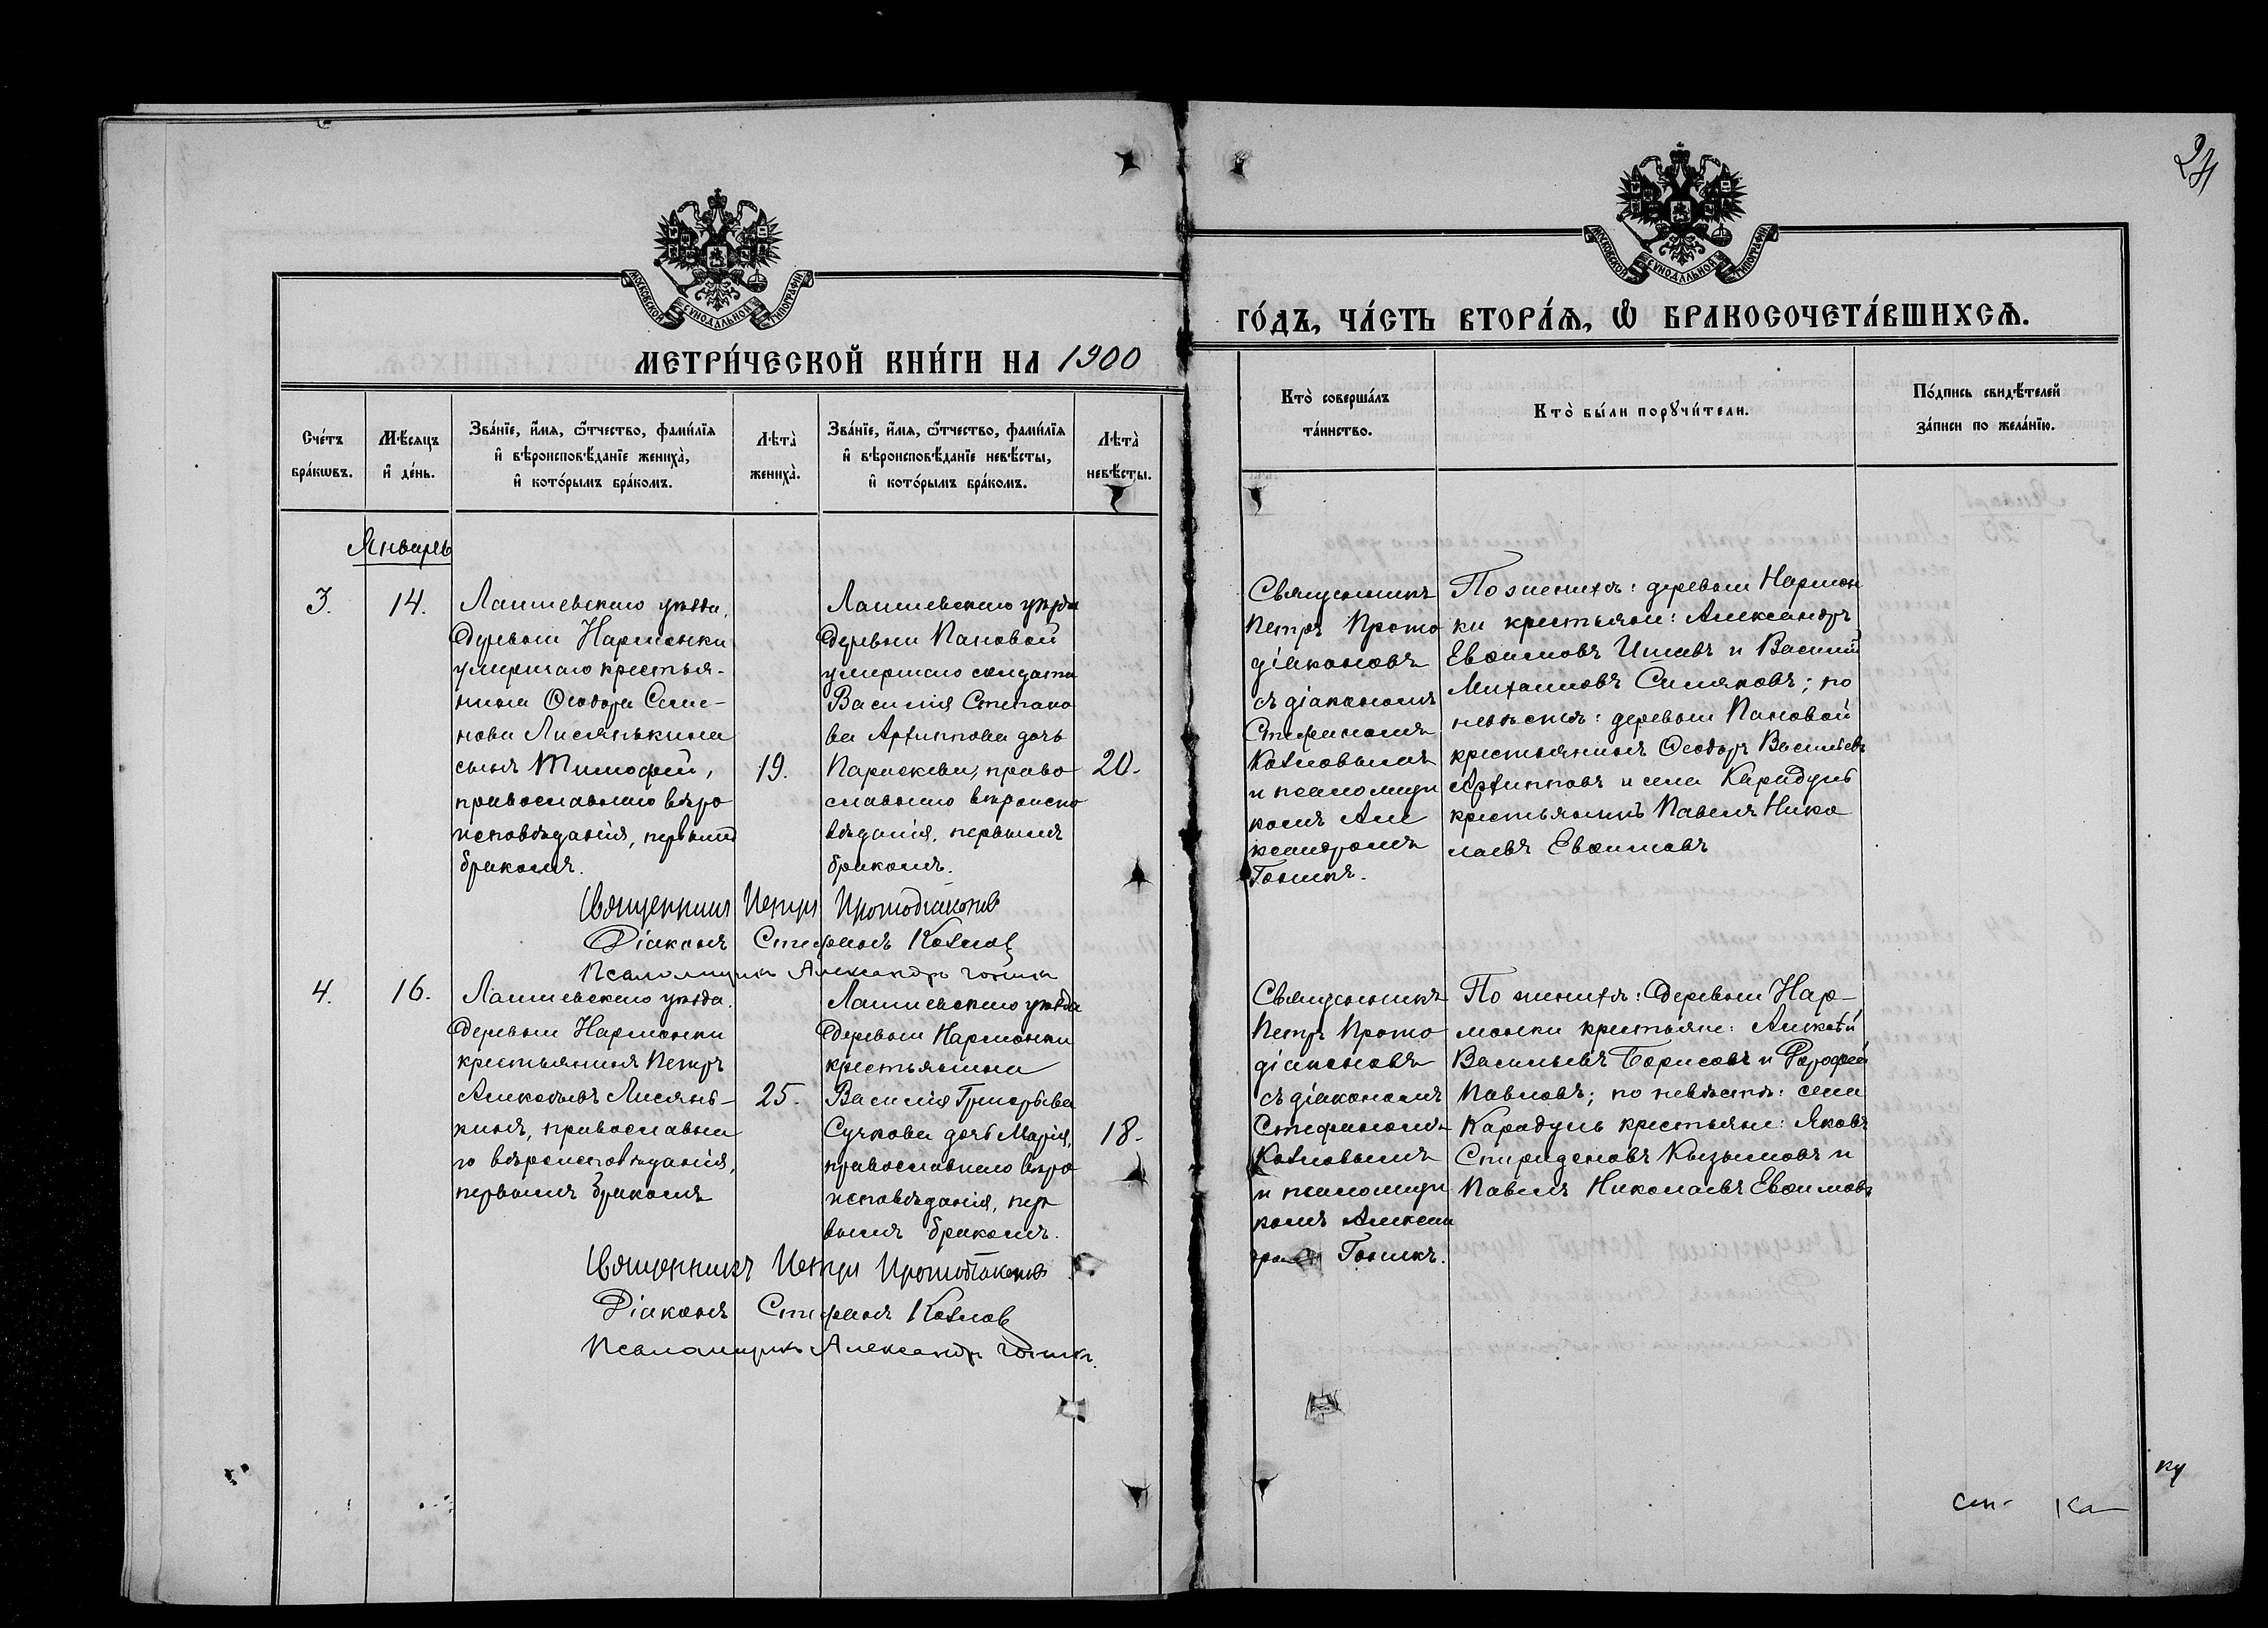 24
МОСКОВСКОЙ СѴНОДАЛЬНОЙ ТИПОГРАФІИ
МОСКОВСКОЙ СѴНОДАЛЬНОЙ ТИПОГРАФІИ
МЕТРИ́ЧЕСКОЙ КНИ́ГИ НА 1900
ГО́ДЪ, ЧА́СТЬ ВТОРА́Ѧ, Ѽ БРАКОСОЧЕТА́ВШИХСѦ.
Сче́тъ бра́кѡвъ.
Мѣ́сяцъ и҆ де́нь.
Зва́нїе, и҆́мя, ѻ҆́тчество, фами́лїя
и҆ вѣроисповѣ́данїе жениха̀,
и҆ кото́рымъ бра́комъ.
Лѣта̀ жениха̀.
Зва́нїе, и҆́мя, ѻ҆́тчество, фами́лїя
и҆ вѣроисповѣ́данїе невѣ́сты,
и҆ кото́рымъ бра́комъ.
Лѣта̀ невѣ́сты.
Кто̀ соверша́лъ та́инство.
Кто̀ бы́ли порꙋчи́тели.
По́дпись свидѣ́телей за́писи по жела́нїю.
Январь
3.
14.
Лаишевскаго уѣзда,
деревни Нармонки
умершаго крестья-
нина Ѳеодора Семе-
нова Лисянькина
сынъ Тимофей,
православнаго вѣро
исповѣданія, первымъ
бракомъ.
19.
Лаишевскаго уѣзда
деревни Пановой
умершаго солдата
Василія Степано
ва Архиппова дочь
Параскева, право
славнаго вѣроиспо
вѣданія, первымъ
бракомъ.
20.
Священникъ
Петръ Прото
діаконовъ
съ діакономъ
Стефаномъ
Козловымъ
и псаломщи
комъ Але
ксандромъ
Гоникъ.
По женихѣ: деревни Нармон
ки крестьяне: Александръ
Евѳимовъ Ишевъ и Василій
Михаиловъ Симяковъ; по
невѣстѣ: деревни Пановой
крестьянинъ Ѳеодоръ Васильевъ
Архипповъ и села Карадуль
крестьянинъ Павелъ Нико
лаевъ Евѳимовъ
Священникъ Петръ Протодіаконовъ
Діаконъ Стефанъ Козлов
Псаломщикъ Александръ Гоникъ
4.
16.
Лаишевскаго уѣзда.
Деревни Нармонки
крестьянинъ Петръ
Алексѣевъ Лисянь-
кинъ, православна
го вѣроисповѣданія,
первымъ бракомъ
25.
Лаишевскаго уѣзда
Деревни Нармонки
крестьянина
Василія Григорьева
Сучкова дочь Марія,
православнаго вѣро
исповѣданія, пер
вымъ бракомъ.
18.
Священникъ
Петръ Прото
діаконовъ
съ діакономъ
Стефаномъ
Козловымъ
и псаломщи
комъ Алексан
Гоникъ.
По женихѣ: Деревни Нар-
монки крестьяне: Алексѣй
Васильевъ Борисовъ и Дорофей
Павловъ; по невѣстѣ: села
Карадуль крестьяне: Яковъ
Спиридоновъ Кызымовъ и
Павелъ Николаевъ Евѳимовъ
Священникъ Петръ Протодіаконовъ
Діаконъ Стефанъ Козлов
Псаломщикъ Александръ Гоникъ.